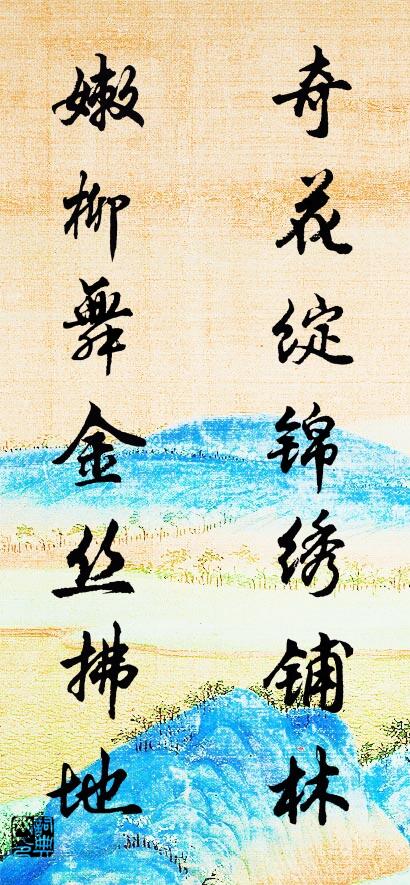 奇花绽锦绣铺林
嫩柳舞金丝拂地